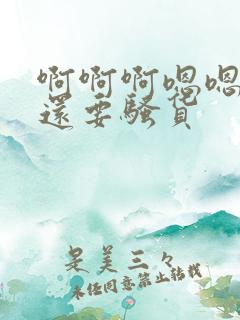 啊啊啊嗯嗯
還要騷貨
是美三々
未经同意禁止转载